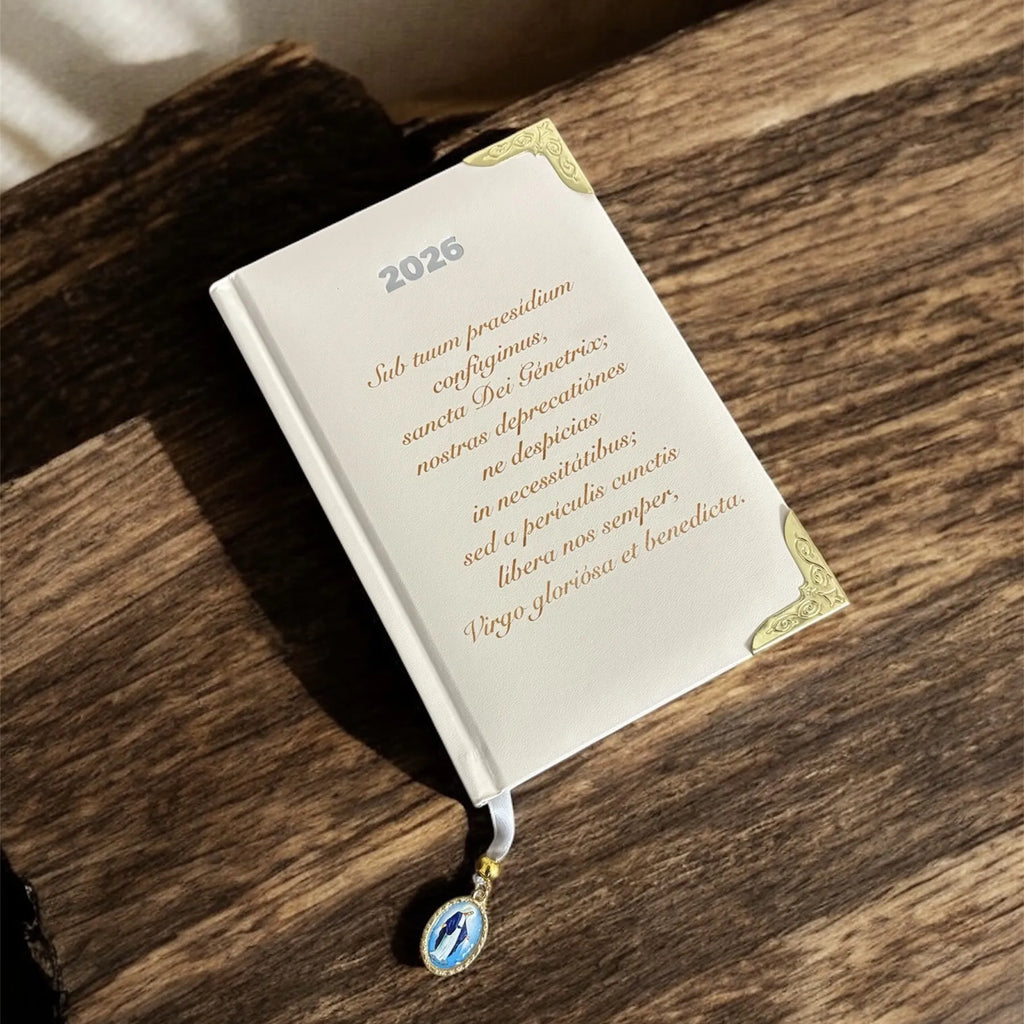 2026
Sub tuum praesídium
confúgimus,
sancta Dei Génetrix;
nostras deprecatiónes
ne despícias
in necessitátibus;
sed a perículis cunctis
líbera nos semper,
Virgo gloriósa et benedícta.